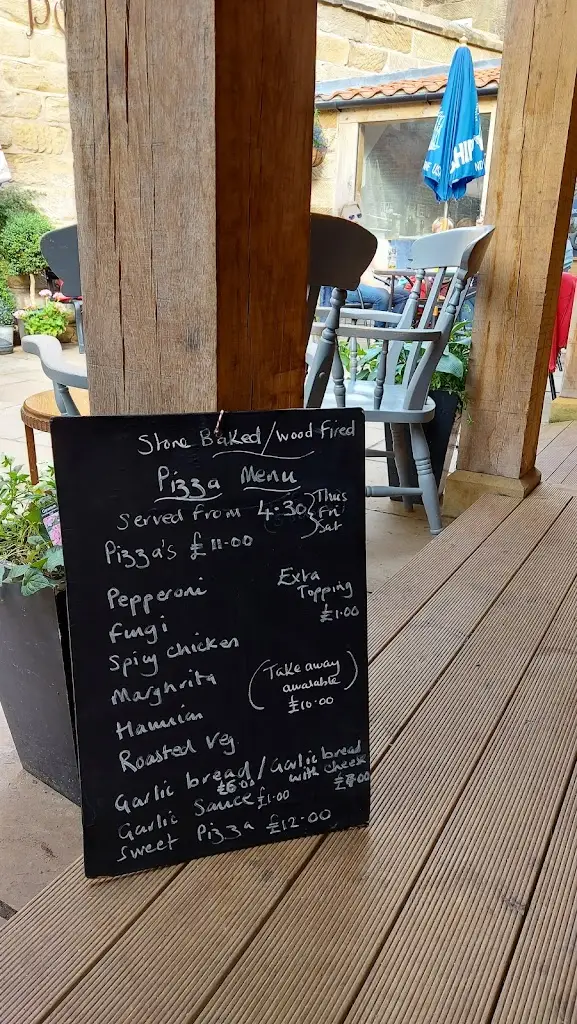 Stone Baked/wood fired
Pizza Menu
Served from 4.30 Thus
Fri
Sat
Pizza's £11.00
Pepperoni
Fungi
Spicy chicken
Marghrita
Roasted Veg
Extra
Topping
£1.00
(Take away
available
£10.00)
Garlic bread / Garlic bread
£6.00 with cheese
Garlic Sauce £1.00
Sweet Pizza £12.00